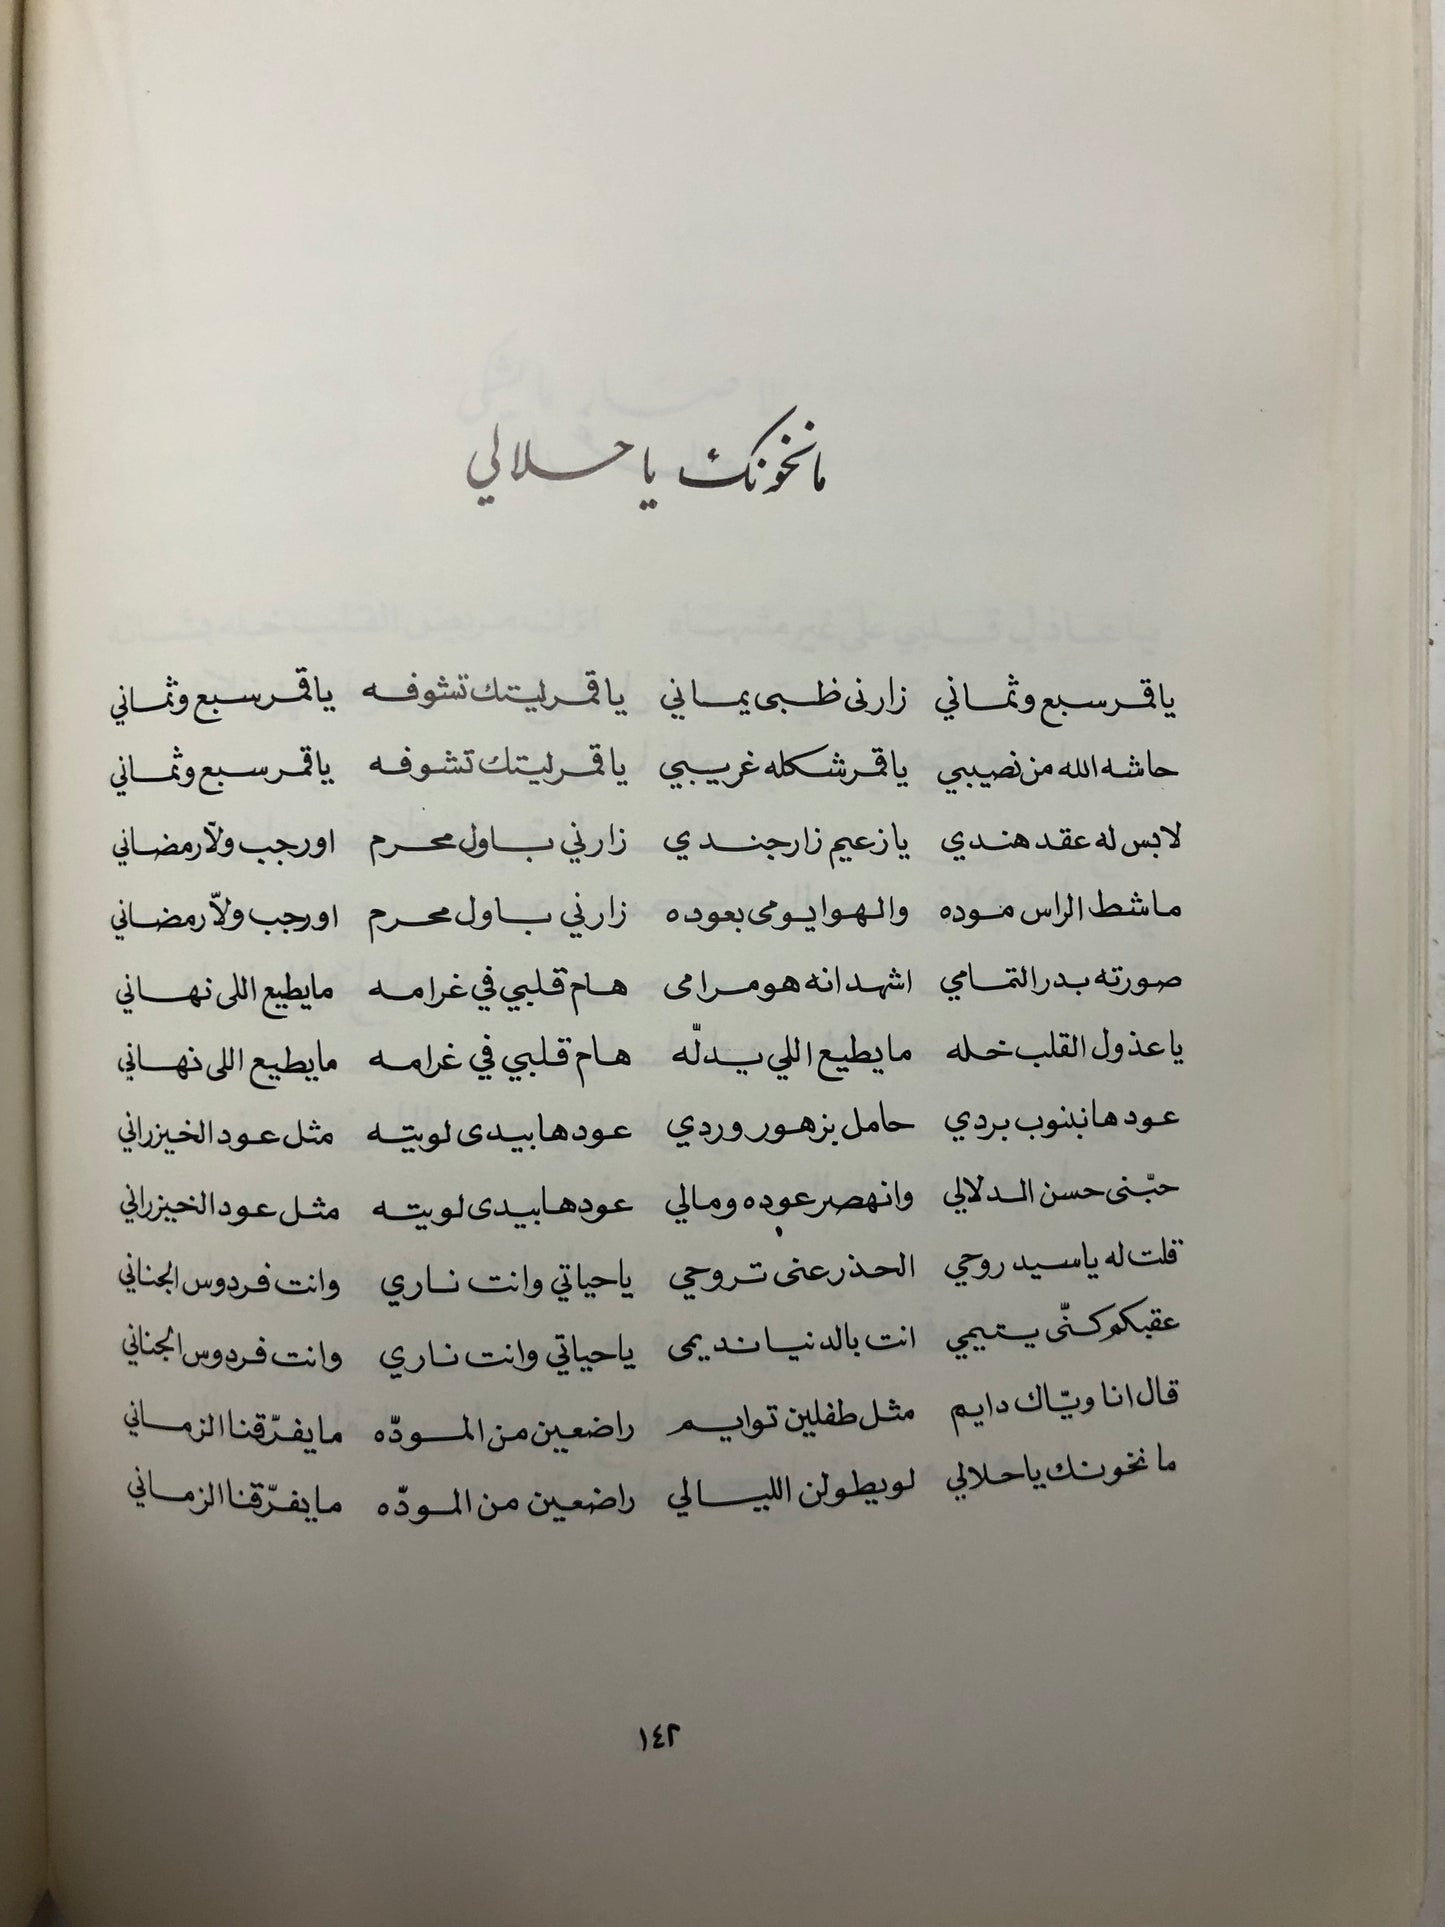 مانخونك ياحلالي
ياقمر سبع وثماني زارنى ظبى يماني ياقمر ليتك تشوفه ياقمر سبع وثماني
حاشه الله من نصيبي ياقمر شكله غريبي ياقمر ليتك تشوفه ياقمر سبع وثماني
لابس له عقد هندي يازعيم زار جندي زارني باول محرم اورجب ولاّ رمضاني
ماشط الراس موده والهوا يومى بعوده زارني باول محرم اورجب ولاّ رمضاني
صورته بدر التمامي اشهد انه هو مرامى هام قلبي في غرامه مايطيع اللى نهاني
ياعذول القلب خله مايطيع اللي يدلّه هام قلبي في غرامه مايطيع اللى نهاني
عودها بنوب بردي حامل بزهور وردي عودها بيدى لويته مثل عود الخيزراني
حبّنى حسن الدلالي وانهصر عوده ومالي عودها بيدى لويته مثل عود الخيزراني
قلت له ياسيد روحي الحذر عنى تروحي ياحياتي وانت ناري وانت فردوس الجناني
عقبكم كنّى يتيمي انت بالدنيا نديمى ياحياتي وانت ناري وانت فردوس الجناني
قال انا ويّاك دايم مثل طفلين توايم راضعين من المودّه مايفرّقنا الزماني
مانخونك ياحلالي لويطولن الليالي راضعين من المودّه مايفرّقنا الزماني
١٤٢